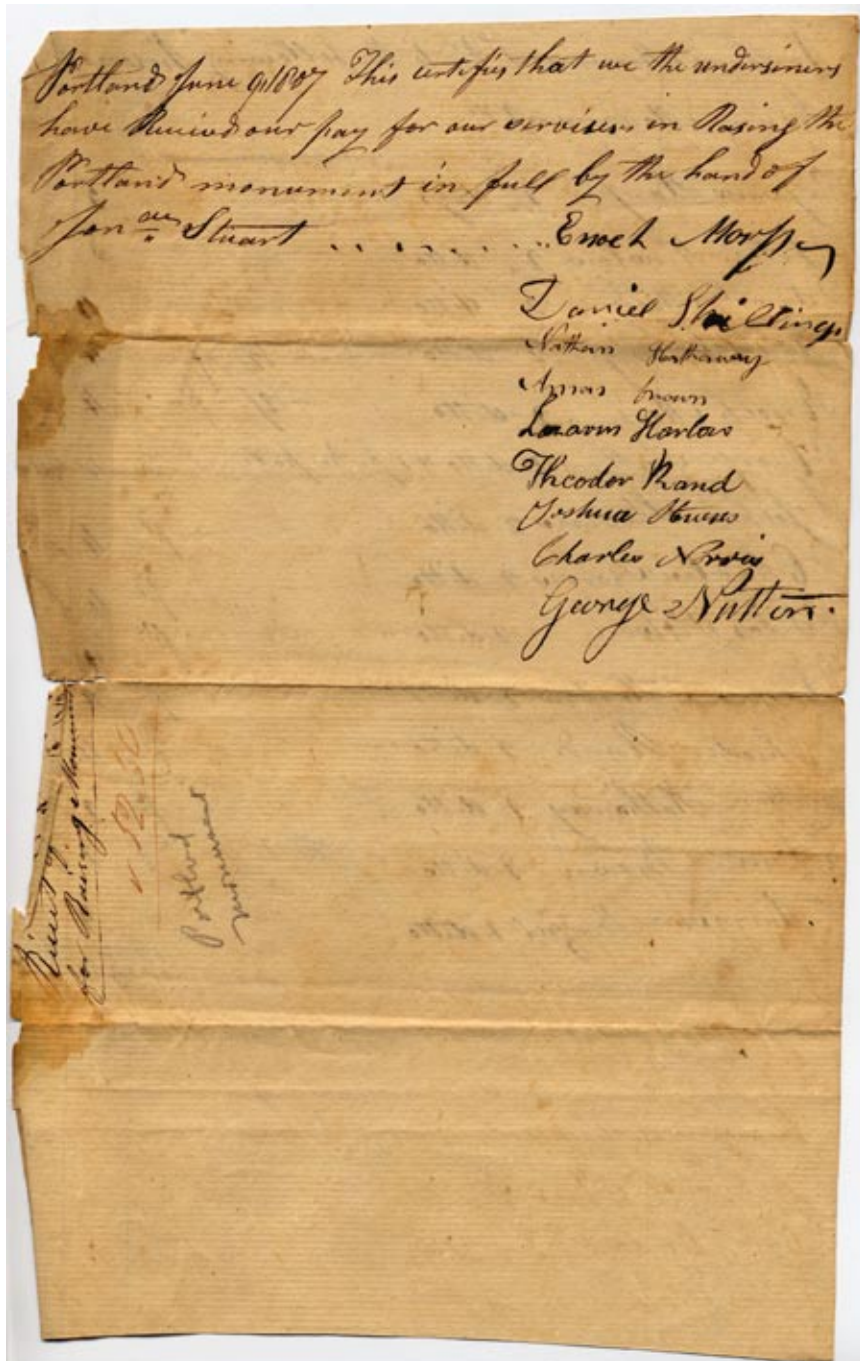 Portland June 9, 1807 This certifies that we the undersiners
have Recieved our pay for our servises in Rasing the
Portland monument in full by the hand of
Jonan Stuart . . . . . . . . Enoch Morss
Daniel Shillings
Nathan Hathaway
Amos brown
Harlow
Theodor Rand
Joshua
Charles Norris
George Nutton.
for Raising Monument
52.50
Portland
monument